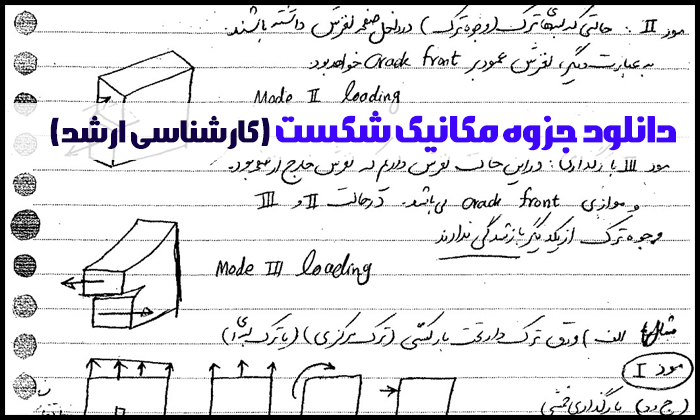 مود II : حالتی که لبه‌های ترک (وجوه ترک) در داخل صفحه لغزش داشته باشند.
به عبارت دیگر، لغزش عمود بر crack front خواهد بود
Mode II loading
دانلود جزوه مکانیک شکست (کارشناسی ارشد)
مود III بارگذاری : در این حالت لغزش داریم که لغزش خارج از صفحه بود.
و موازی crack front می‌باشد. در حالت II و III
وجوه ترک از یکدیگر بازشدگی ندارند
Mode III loading
مثال الف) ورق ترک‌دار تحت بار کششی (ترک مرکزی) (یا ترک لبه‌ای)
مود I
بارگذاری خمشی